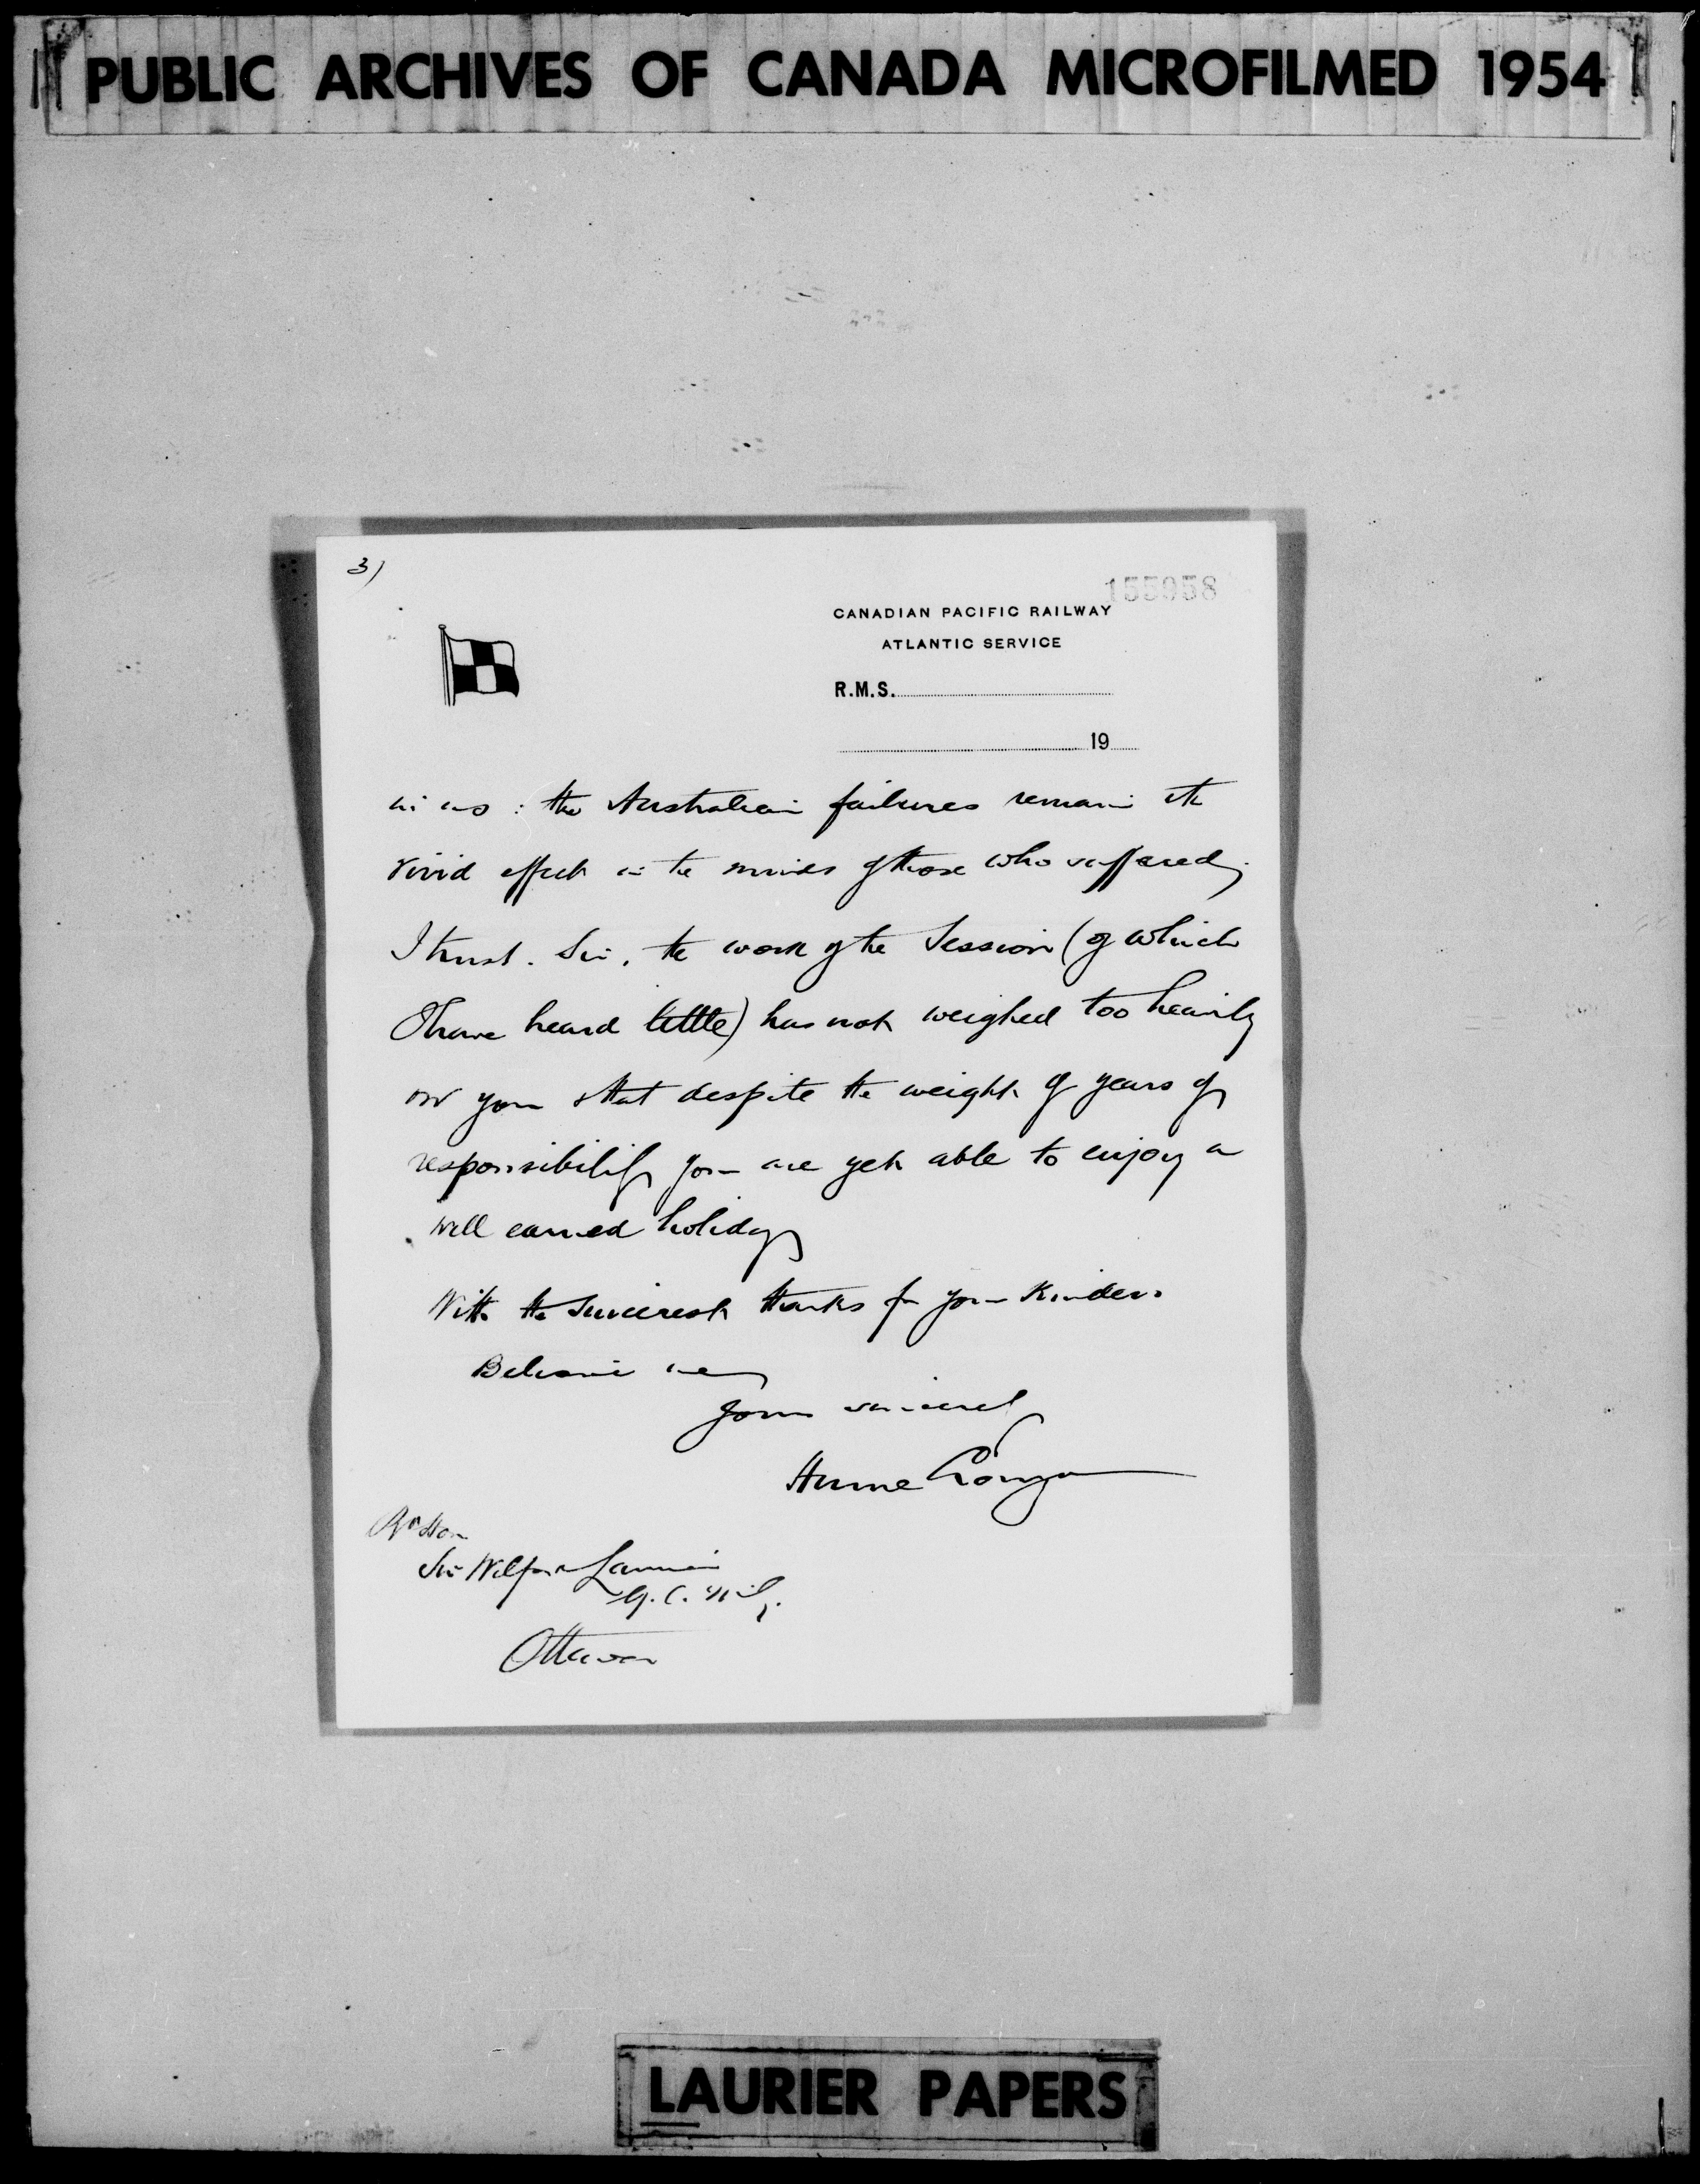 PUBLIC ARCHIVES OF CANADA MICROFILMED 1954
3)
155958
CANADIAN PACIFIC RAILWAY
ATLANTIC SERVICE
R.M.S.
19
: the Australian failures remain
vivid effect in the minds of those who suffered.
I trust. Sir, the work of the Session (of which
I have heard little) has not weighed too heavily
on you & that despite the weight of years of
responsibility you are yet able to enjoy a
well earned holiday
With the sincerest thanks for your kindness
Believe me
Yours sincerely
Hume
Rt Hon
Sir Wilfrid Laurier
G.C.M.G.
Ottawa
LAURIER PAPERS